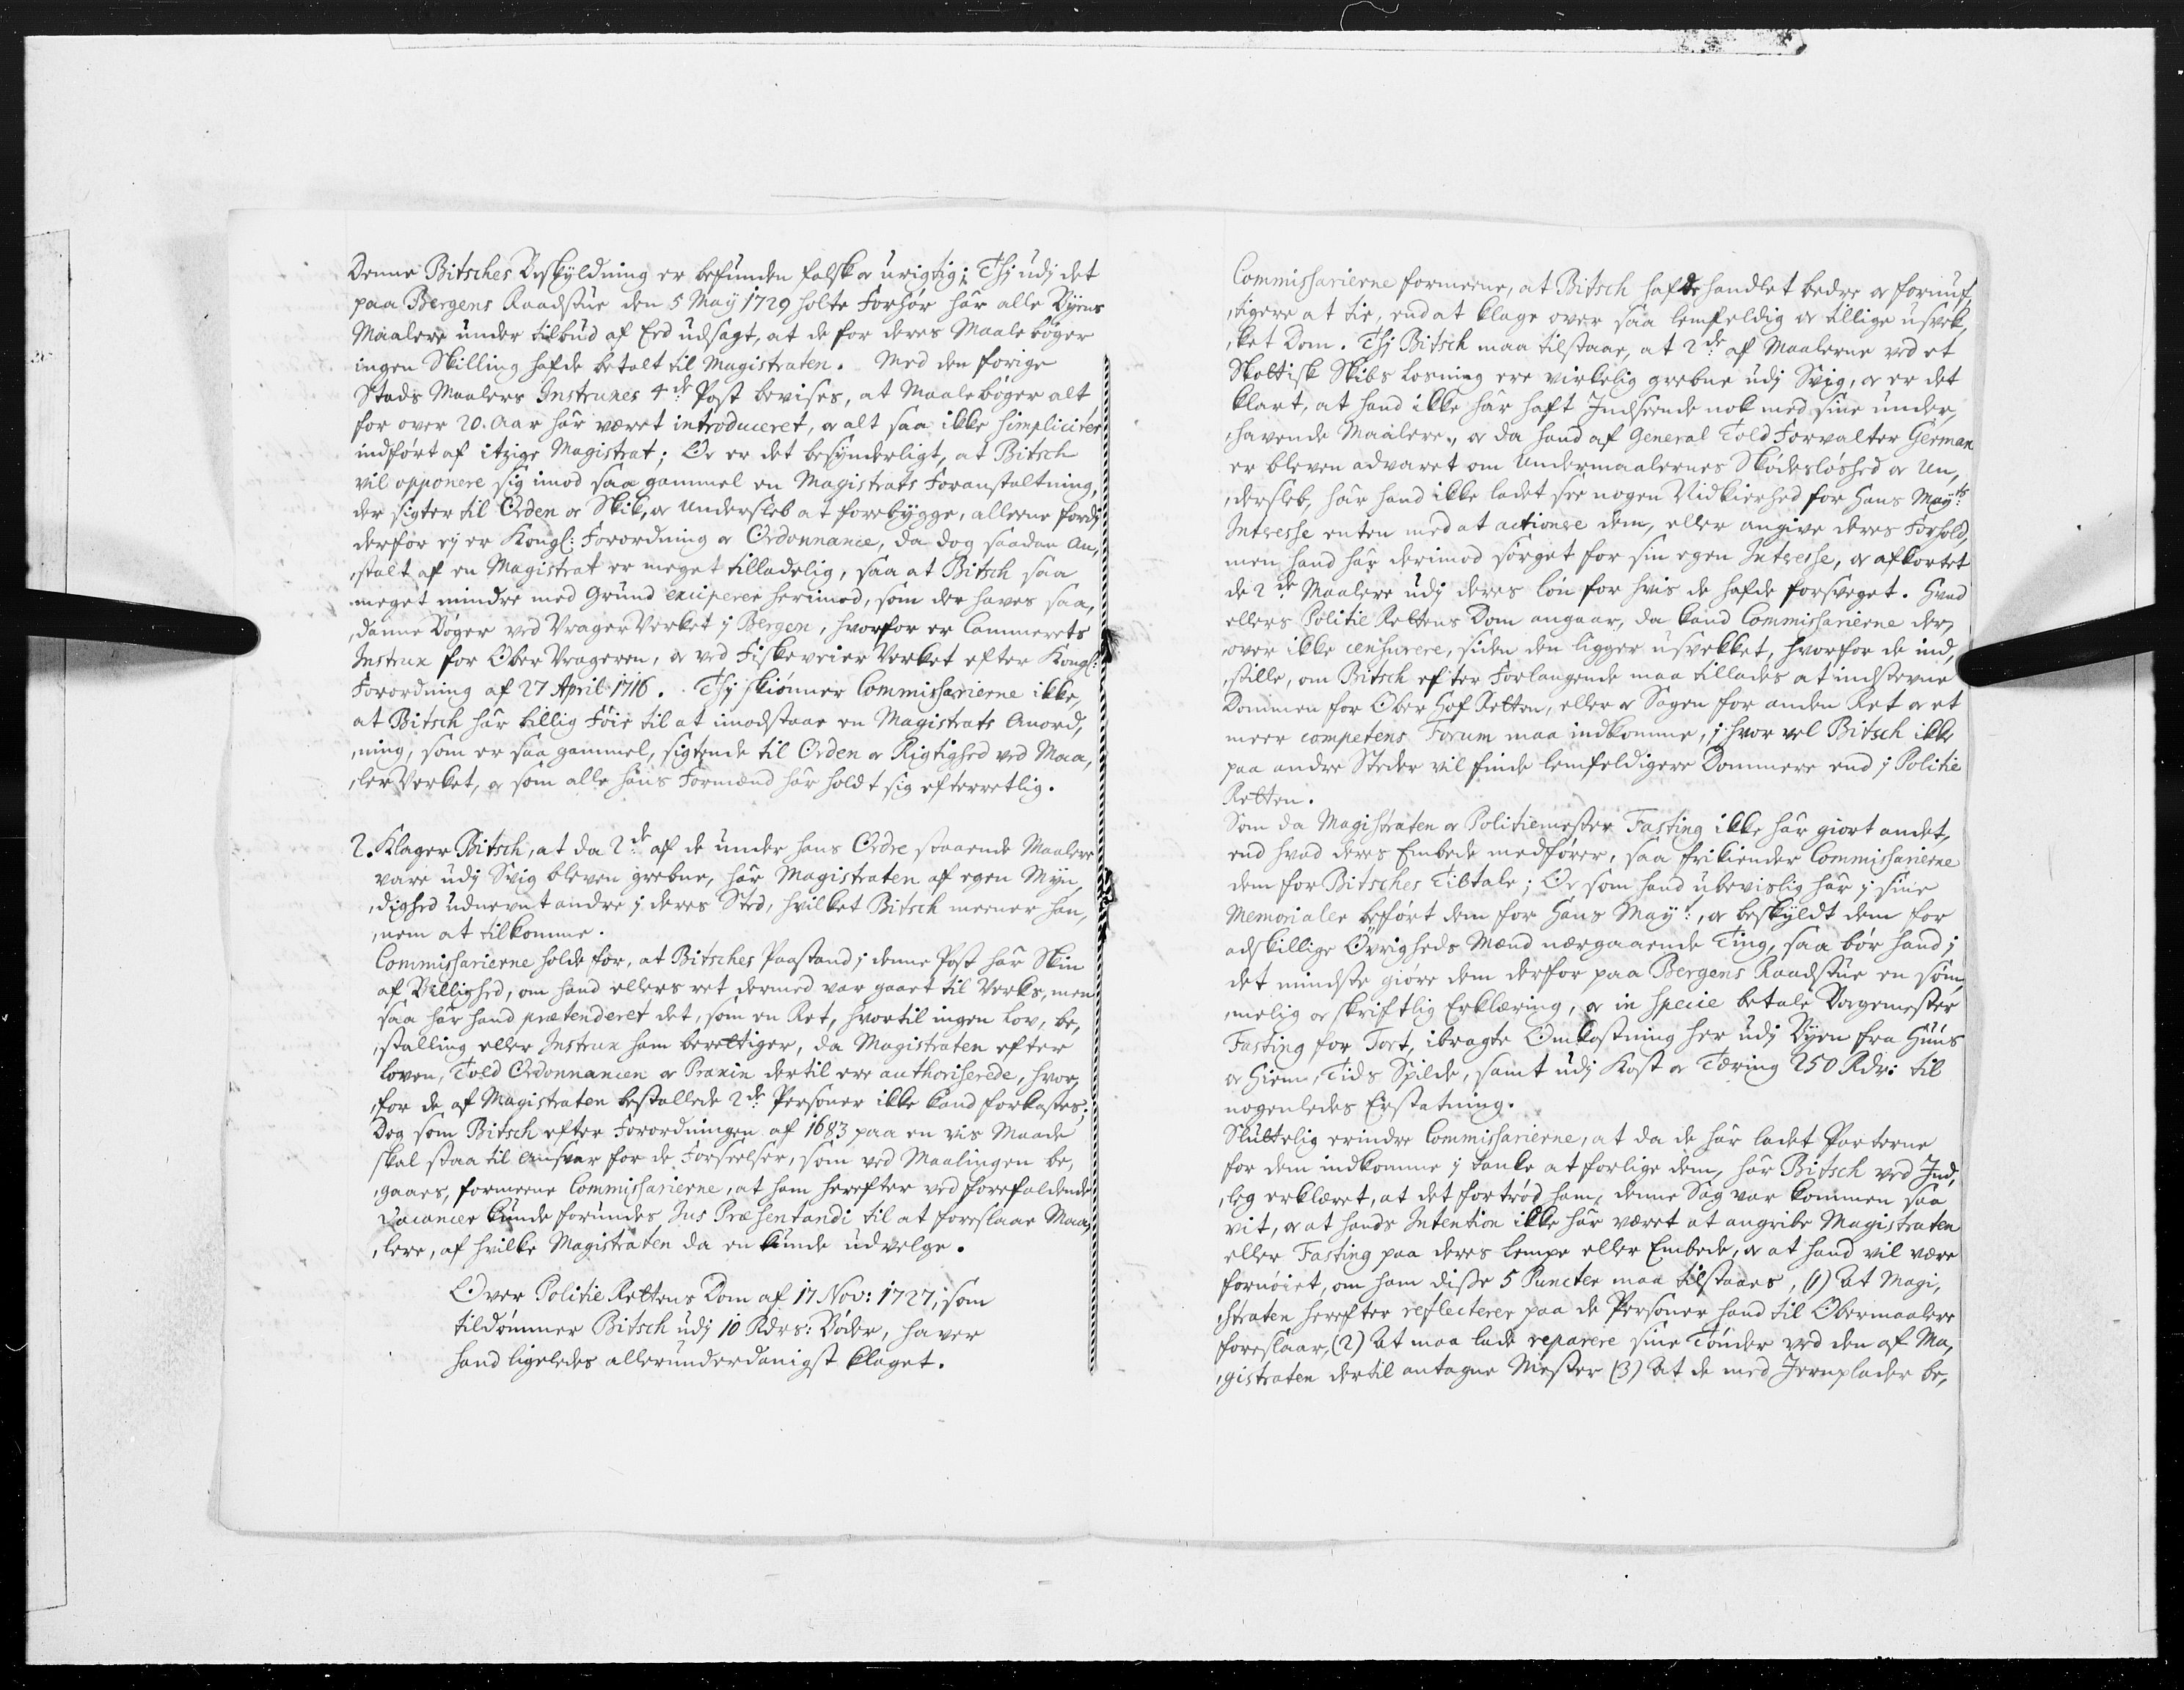 Denne Bitsches Beskyldning er befunden falsk og urigtig; Thj udj det
paa Bergens Raadstue den 5 May 1729 holte Forhör har alle Byens
Maalere under tilbud af Eed udsagt, at de for deres Maale böger
ingen Skilling hafde betalt til Magistraten. Med den forige
Stads Maalers Instruxes 4de Post bevises, at Maaleböger alt
for over 20. Aar har været introduceret, og altsaa ikke simpliciter
indfört af itzige Magistrat; Og er det besynderligt, at Bitsch
vil opponere sig imod saa gammel en Magistrats Foranstaltning,
der sigter til Orden og Skik, og Undersleb at forebygge, alleene fordj
derfor ej er Kongl: Forordning og Ordonnance, da dog saadan An,
,stalt af en Magistrat er meget tilladelig, saa at Bitsch saa
meget mindre med Grund exciperer herimod, som der haves saa,
,danne Böger ved Vrager Verket j Bergen, hvorfor er Cammerets
Instrux for Ober Vrageren, og ved Fiskeveier Verket efter Kongl:
Forordning af 27 April 1716. Thj skiönner Commissarierne ikke,
at Bitsch har billig Föie til at imodstaae en Magistrats Anord,
,ning, som er saa gammel, sigtende til Orden og Rigtighed ved Maa,
,ler Verket, og som alle hans Formænd har holdt sig efterretlig.
2. Klager Bitsch, at da 2de af de under hans Ordre staaende Maalere
vare udj Svig bleven grebne, har Magistraten af egen Myn,
,dighed udnevnt andre j deres Sted, hvilket Bitsch meener han,
,nem at tilkomme.
Commissarierne holde for, at Bitsches Paastand j denne Post har Skin
af Billighed, om hand ellers ret dermed var gaaet til Verks, men
saa har hand prætenderet det, som en Ret, hvortil ingen Lov, be,
,stalling eller Instrux ham berettiger, da Magistraten efter
Loven, Told Ordonnancen og Praxin dertil ere authoriserede, hvor,
,for de af Magistraten bestallede 2de Personer ikke kand forkastes;
Dog som Bitsch efter Forordningen af 1683 paa en vis Maade
skal staa til Ansvar for de Forseelser, som ved Maalingen be,
,gaaes, formeene Commissarierne, at ham herefter ved forefaldende
Vacancer kunde forundes Jus Præsentandi til at foreslaae Maa,
,lere, af hvilke Magistraten da en kunde udvelge.
Over Politie Rettens Dom af 17 Nov: 1727, som
tildömmer Bitsch udj 10 Rdrs: Böder, haver
hand ligeledes allerunderdanigst klaget.
Commissarierne formeene, at Bitsch hafde handlet bedre og fornuf,
,tigere at tie, end at klage over saa lemfeldig og tillige usvek,
,ket Dom. Thj Bitsch maa tilstaae, at 2de af Maalerne ved et
Skottisk Skibs Losning ere virkelig grebne udj Svig, og er det
klart, at hand ikke har haft Indseende nok med sine under,
,havende Maalere, og da hand af General Told Forvalter German
er bleven advaret om Undermaalernes Sködeslöshed og Un,
,dersleb, har hand ikke ladet see nogen Nidkierhed for Hans Mayts:
Intresse enten med at actionere dem, eller angive deres Forhold,
men hand har derimod sörget for sin egen Intresse, og afkortet
de 2de Maalere udj deres Lön for hvis de hafde forsveget. Hvad
ellers Politie Rettens Dom angaar, da kand Commissarierne der,
,over ikke censurere, siden den ligger usvekket, hvorfor de ind,
,stille, om Bitsch efter Forlangende maa tillades at indstevne
Dommen for Ober Hof Retten, eller og Sagen for anden Ret og et
meer competens Forum maa indkomme, j hvor vel Bitsch ikke
paa andre Steder vil finde lemfeldigere Dommere end j Politie
Retten.
Som da Magistraten og Politiemester Fasting ikke har giort andet,
end hvad deres Embede medförer, saa frikiender Commissarierne
dem for Bitsches Tiltale; Og som hand ubevislig har j sine
Memorialer befört dem for Hans Mayt:, og beskyldt dem for
adskillige Övrigheds Mænd nærgaaende Ting, saa bör hand j
det mindste giöre dem derfor paa Bergens Raadstue en söm,
,melig og skriftlig Erklæring, og in specie betale Borgemester
Fasting for Tort, ibragte Omkostning her udj Byen fra Huus
og Hiem, Tids Spilde, samt udj Kost og Tæring 250 Rdr: til
nogenledes Erstatning.
Slutteelig erindre Commissarierne, at da de har ladet Parterne
for dem indkomme j tanke at forlige dem, har Bitsch ved Ind,
,leg erklæret, at det fortröd ham, denne Sag var kommen saa
vit, og at hands Intention ikke har været at angribe Magistraten
eller Fasting paa deres Lempe eller Embede, og at hand vil være
fornöiet, om ham disse 5 Puncter maa tilstaaes, (1) At Magi,
,straten herefter reflecterer paa de Personer hand til Obermaalere
foreslaar, (2) At maa lade reparere sine Tönder ved den af Ma,
,gistraten dertil antagne Mester (3) At de med Jernplader be,